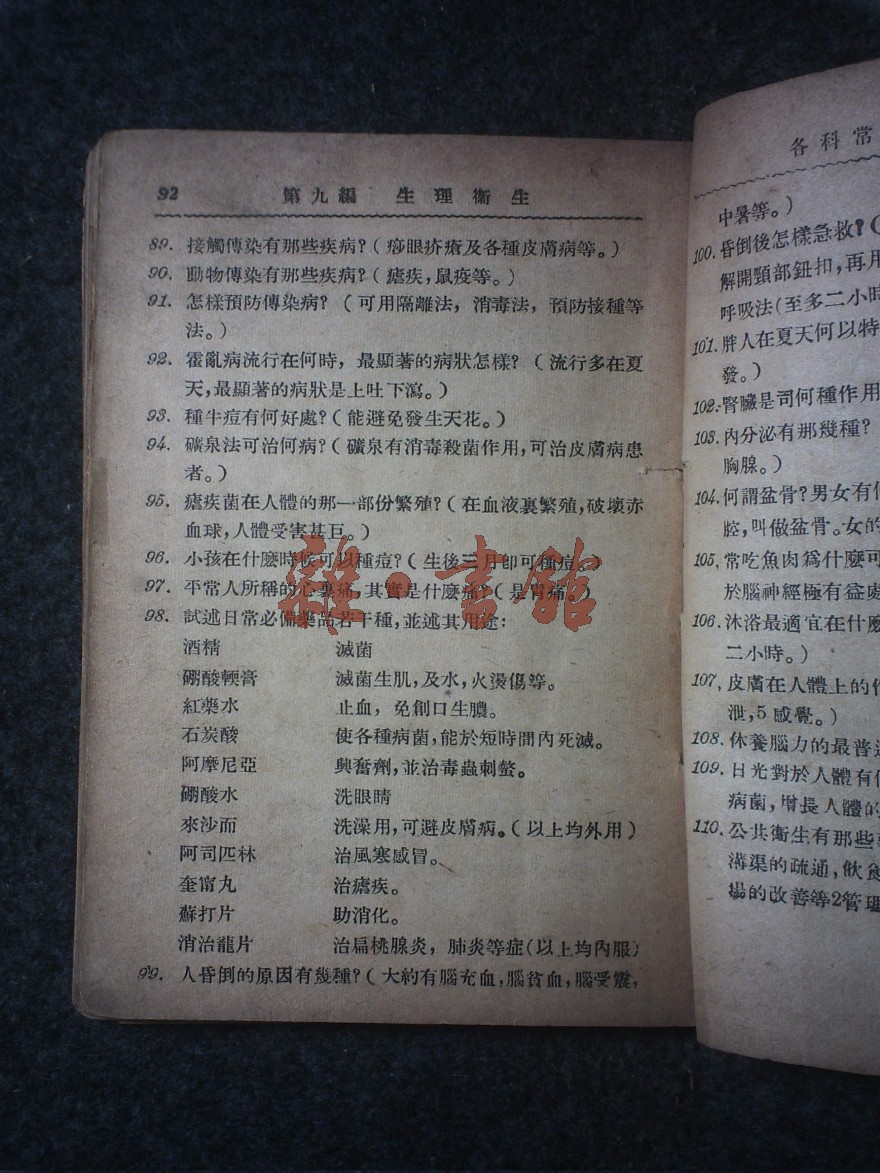 92 第九編 生理衞生
89. 接觸傳染有那些疾病?(痧眼疥瘡及各種皮膚病等。)
90. 動物傳染有那些疾病?(瘧疾,鼠疫等。)
91. 怎樣預防傳染病?(可用隔離法,消毒法,預防接種等
法。)
92. 霍亂病流行在何時,最顯著的病狀怎樣?(流行多在夏
天,最顯著的病狀是上吐下瀉。)
93. 種牛痘有何好處?(能避免發生天花。)
94. 礦泉法可治何病?(礦泉有消毒殺菌作用,可治皮膚病患
者。)
95. 瘧疾菌在人體的那一部份繁殖?(在血液裏繁殖,破壞赤
血球,人體受害甚巨。)
96. 小孩在什麼時候可以種痘?(生後三月卽可種痘。)
97. 平常人所稱的心裏痛,其實是什麼痛?(是胃痛。)
98. 試述日常必備藥品若干種,並述其用途:
酒精 滅菌
硼酸輭膏 滅菌生肌,及水,火燙傷等。
紅藥水 止血,免創口生膿。
石炭酸 使各種病菌,能於短時間內死滅。
阿摩尼亞 興奮劑,並治毒蟲刺螫。
硼酸水 洗眼睛
來沙而 洗澡用,可避皮膚病。(以上均外用)
阿司匹林 治風寒感冒。
奎甯丸 治瘧疾。
蘇打片 助消化。
消治龍片 治扁桃腺炎,肺炎等症(以上均內服)
99. 人昏倒的原因有幾種?(大約有腦充血,腦貧血,腦受震,
雜·書館
各科常
中暑等。)
100. 昏倒後怎樣急救?(
解開頸部鈕扣,再用
呼吸法(至多二小時
101. 胖人在夏天何以特
發。)
102. 腎臟是司何種作用
103. 內分泌有那幾種?
胸腺。)
104. 何謂盆骨?男女有何
腔,叫做盆骨。女的
105. 常吃魚肉爲什麼可
於腦神經極有益處
106. 沐浴最適宜在什麼
二小時。)
107. 皮膚在人體上的作
泄,5感覺。)
108. 休養腦力的最普通
109. 日光對於人體有何
病菌,增長人體的
110. 公共衞生有那些
溝渠的疏通,飲食
場的改善等2管理